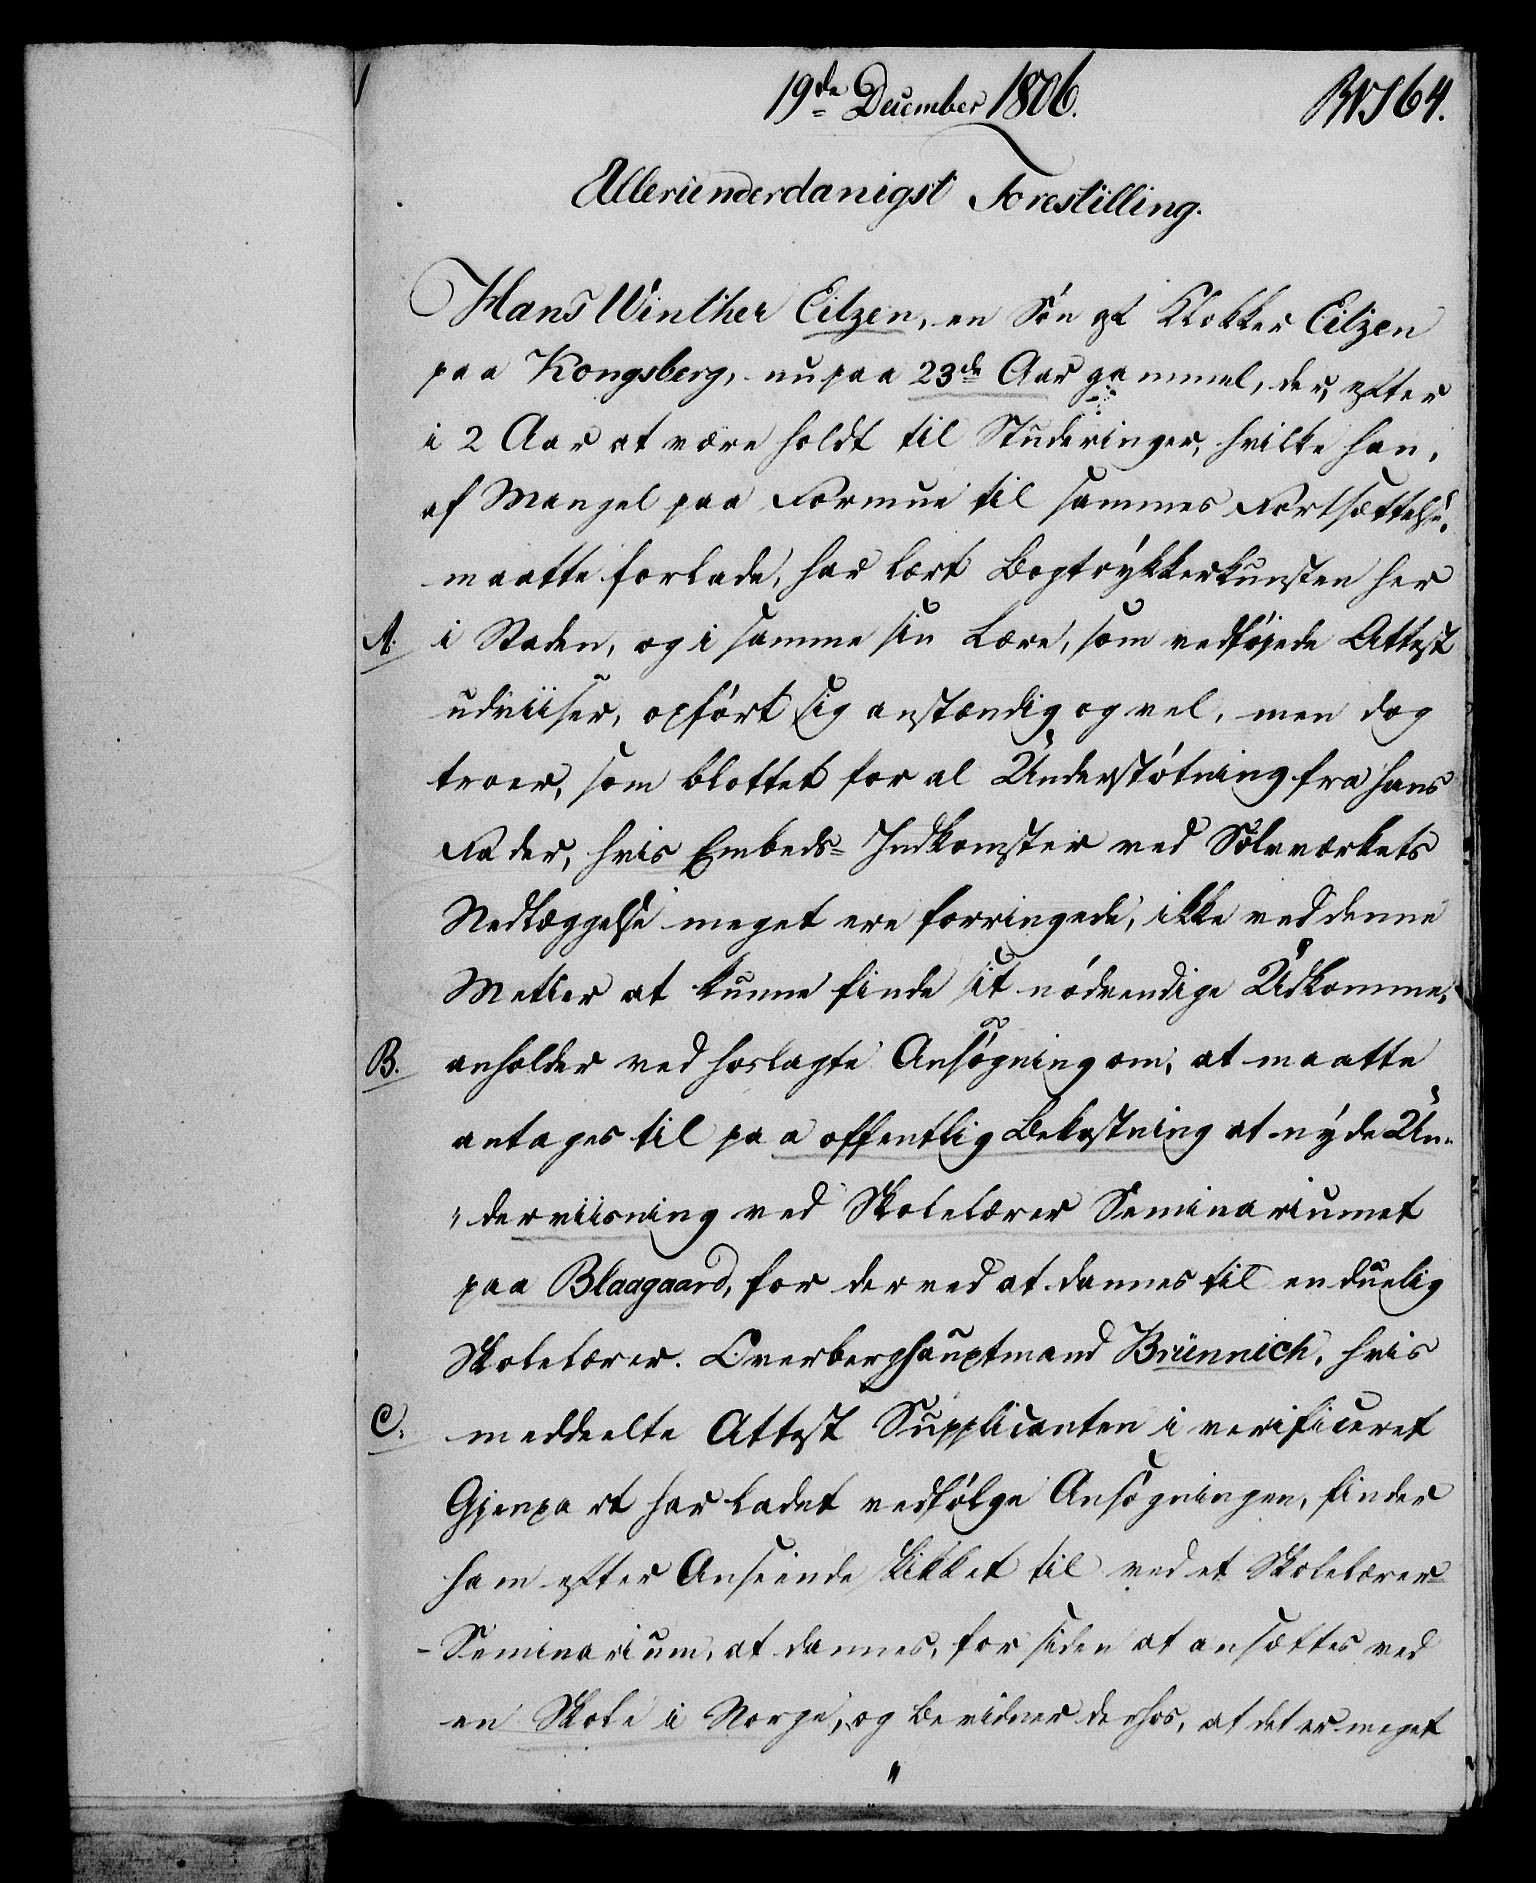 19de December 1806.
No 64.
Allerunderdanigst Forestilling.
Hans Winther Eitzen, en Søn af Klokker Eitzen
paa Kongsberg, nu paa 23de Aar gammel, der, efter
i 2 Aar at være holdt til Studeringer, hvilke han,
af Mangel paa Formue til sammes Fortsættelse,
maatte forlade, har lært Bogtrykkerkunsten her
A. i Staden, og i samme sin Lære, som vedføjede Attest
udviiser, opført sig anstændig og vel, men dog
troer, som blottet for al Understøtning fra hans
Fader, hvis Embeds-Indkomster ved Sølvværkets
Nedlæggelse meget ere forringede, ikke ved denne
Metier at kunne finde sit nødvendige Udkomme,
B. anholder ved hoslagte Ansøgning om, at maatte
antages til paa offentlig Bekostning at nyde Un-
-derviisning ved Skolelærer Seminariumet
paa Blaagaard, for derved at dannes til en duelig
Skolelærer. Overberghauptmand Brünnich, hvis
C. meddeelte Attest Supplicanten i verificeret
Gjenpart har ladet vedfølge Ansøgningen, finder
ham efter Anseende skikket til ved et Skolelærer-
-Seminarium, at dannes, for siden at ansættes ved
en Skole i Norge, og bevidner derhos, at det er meget
"